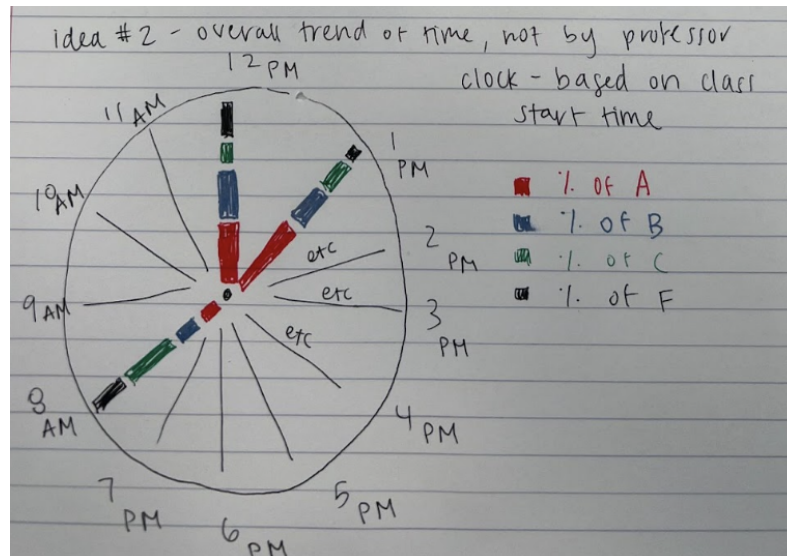 idea #2 - overall trend of time, not by professor
clock - based on class
start time
12 PM
1 PM
2 PM
3 PM
4 PM
5 PM
6 PM
7 PM
8 AM
9 AM
10 AM
11 AM
etc
etc
etc
% of A
% of B
% of C
% of F